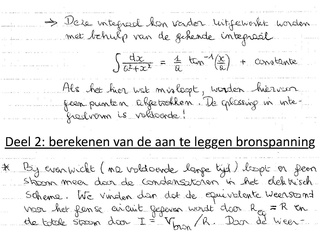 → Deze integraal kan verder uitgewerkt worden
met behulp van de gekende integraal
∫ dx / (a² + x²) = 1/a tan⁻¹(x/a) + constante
Als het hier wat misloopt, worden hiervoor
geen punten afgetrokken. De oplossing in inte-
graalvorm is voldoende!
Deel 2: berekenen van de aan te leggen bronspanning
* Bij evenwicht (na voldoende lange tijd) loopt er geen
stroom meer door de condensatoren in het elektrisch
schema. We vinden dan dat de equivalente weerstand
voor het ganse circuit gegeven wordt door R_eq = R en
de totale stroom door I = V_bron / R. Door de weer-